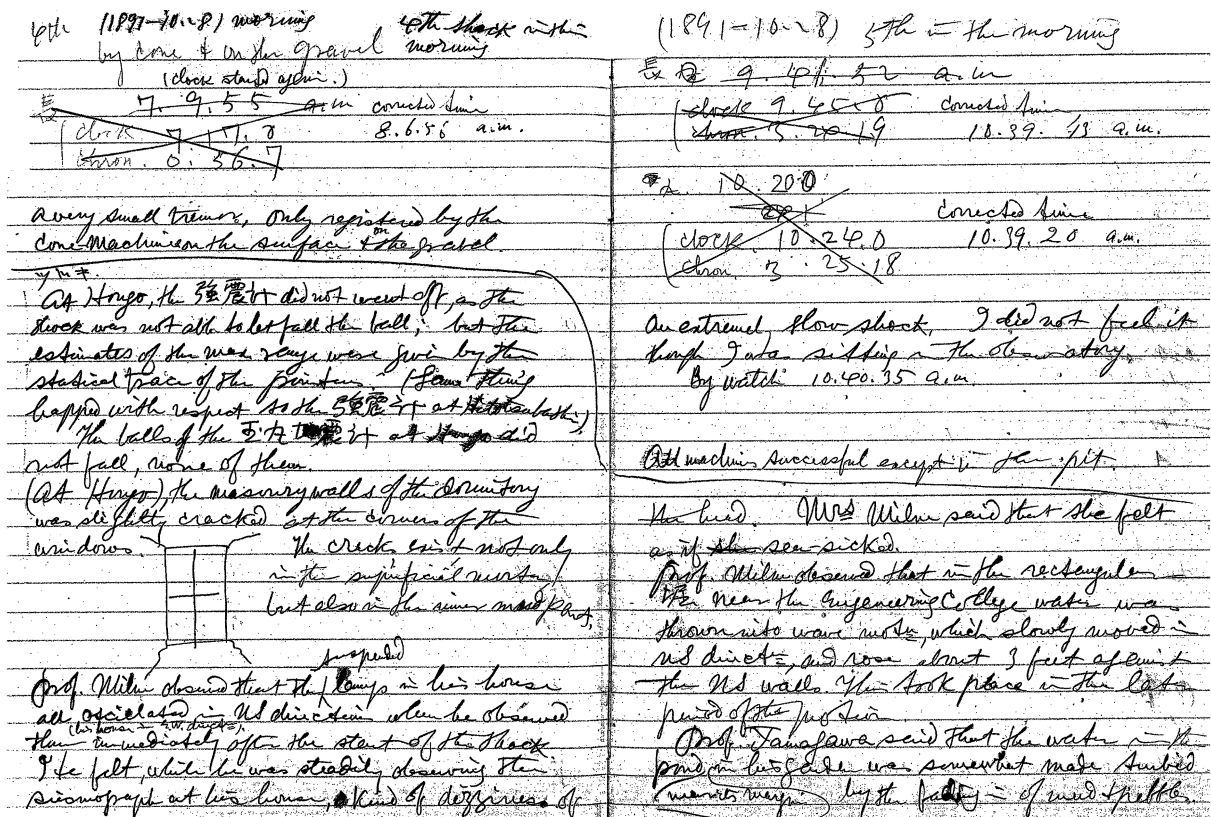 4th (1891-10-28) morning 4th shock in this morning
by cone & on the gravel
(clock stand again.)
長 7. 9. 55 a.m corrected time
clock 7 17. 0 8. 6. 56 a.m.
chron. 0. 56. 7
a very small tremor, only registered by the
Cone-Machine on the surface & on the gravel
At Hongo, the 強震計 did not went off, as the
shock was not able to let fall the ball; but the
estimates of the max range were given by the
statical trace of the pointers. (Same thing
happed with respect to the 強震計 at Hitotsubashi)
The balls of the 震計 at Hongo did
not fall, none of them.
(At Hongo), the masonry walls of the Dormitory
was slightly cracked at the corners of the
windows. The cracks exist not only
in the superficial mortar
but also in the inner mud part,
suspended
Prof. Milne observed that the lamps in his house
all oscilated in NS direction when he observed
(his house in direct=).
them immediately after the start of the shock
He felt, while he was steadily observing the
sismograph at his house, a kind of dizziness of
(1891-10-28) 5th in the morning
長 9. 41. 52 a.m
clock 9. 45. 0 corrected time
chron. 3. 20 19 10. 39. 13 a.m.
10. 20 0
corrected time
clock 10. 24. 0 10. 39. 20 a.m.
chron 3 . 25. 18
An extreml, slow shock, I did not feel it
though I was sitting in the observatory.
By watch 10. 40. 35 a.m.
All machins successful except in the pit.
the head. Mrs Milne said that she felt
as if sea-sicked.
Prof. Milne observed that in the rectangular
near the Engeneering College water was
thrown into wave mot=, which slowly moved in
NS direct=, and rose about 3 feet against
the NS walls. This took place in the late
period of the motion
Prof. Tamagawa said that the water in the
pond in his garden was somewhat made turbed
by the of mud & pebbles.